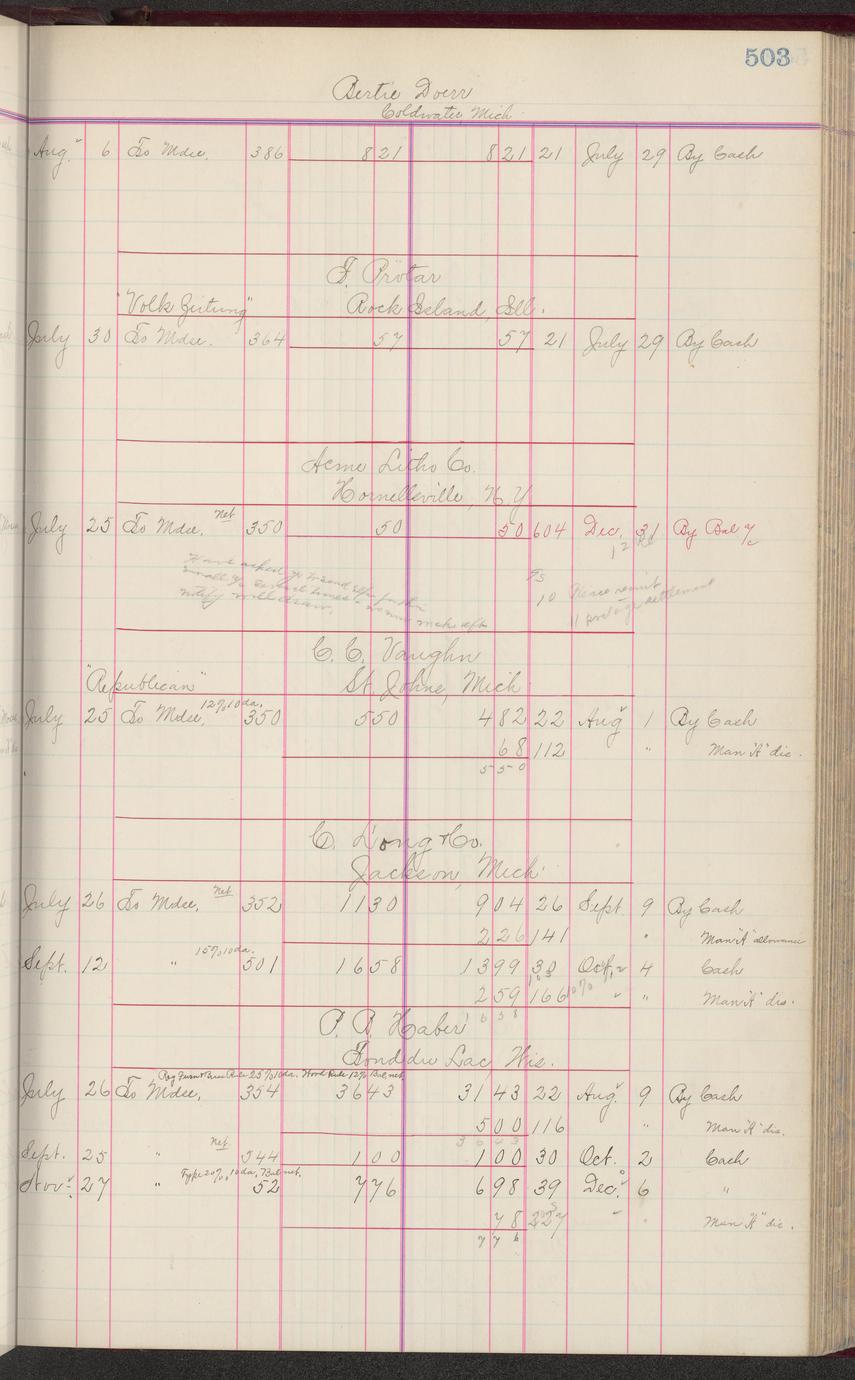 503
Bertie Doerr
Coldwater Mich
Aug. 6 To Mdse. 386 821 821 21 July 29 By Cash
F. Protar
"Volk Zeitung" Rock Island, Ill.
July 30 To Mdse. 364 57 57 21 July 29 By Cash
Acme Litho Co.
Hornellsville, N.Y
July 25 To Mdse. Net 350 50 50 604 Dec. 31 By Bal a/c
Have asked
small several times
notify will draw.
10 Please remit
11 postage settlement
C. C. Vaughn
"Republican" St. Johns, Mich
July 25 To Mdse, 12% 10 da. 350 550 482 22 Aug 1 By Cash
68 112 " Man "A" dis.
550
C. Long & Co.
Jackson, Mich.
July 26 To Mdse, Net 352 1130 904 26 Sept. 9 By Cash
226 141 " Man "A" allowance
Sept. 12 " 15% 10 da. 501 1658 1399 30 Oct. 4 Cash
259 166 10% " " Man "A" dis.
658
P. B. Haber
Fond du Lac, Wis.
Rule 25% 10 da. Wood Rule 12% Bal net.
July 26 To Mdse, 354 3643 3143 22 Aug. 9 By Cash
500 116 " Man "A" dis.
3643
Sept. 25 " Net 544 100 100 30 Oct. 2 Cash
Nov. 27 " Type 20%, 10 da, Bal net. 52 776 698 39 Dec. 6 "
78 227 " " Man "A" dis.
776